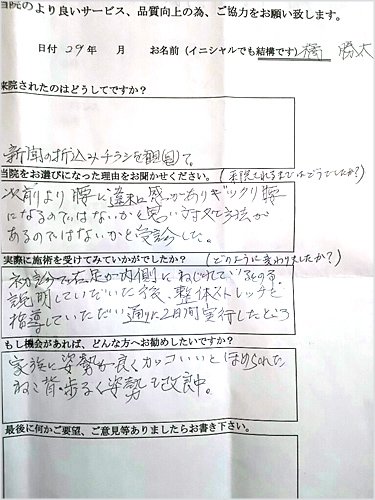 当院のより良いサービス、品質向上の為、ご協力をお願い致します。
日付 29年　月　お名前（イニシャルでも結構です） 橋 勝太
来院されたのはどうしてですか？
新聞の折込みチラシを観て。
当院をお選びになった理由をお聞かせください。（来院されるまではどうでしたか？）
以前より腰に違和感がありギックリ腰
になるのではないかと思い対処方法が
あるのではないかと受診した。
実際に施術を受けてみていかがでしたか？（どのように変わりましたか？）
初診で右足が内側にねじれている
説明していただいた後、整体ストレッチを
指導していただい通りに2日間実行したところ
もし機会があれば、どんな方へお勧めしたいですか？
家族に姿勢が良くカッコいいとほめられた
ねこ背・歩るく姿勢も改良中。
最後に何かご要望、ご意見等ありましたらお書き下さい。